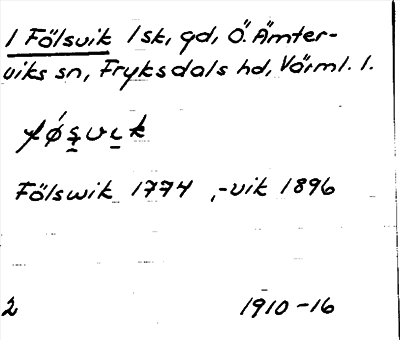 1 Fölsvik 1sk, gd, Ö. Ämter-
viks sn, Fryksdals hd, Värml. l.
Fölswik 1774 ,-vik 1896
2 1910-16